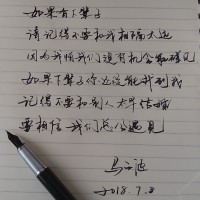 如果有下辈子
请记得不要和我相隔太远
因为我怕我们没有机会和碰见
如果下辈子你还没能找到我
记得不要和别人太早结婚
要相信我们总会遇见
马
2018.7.3